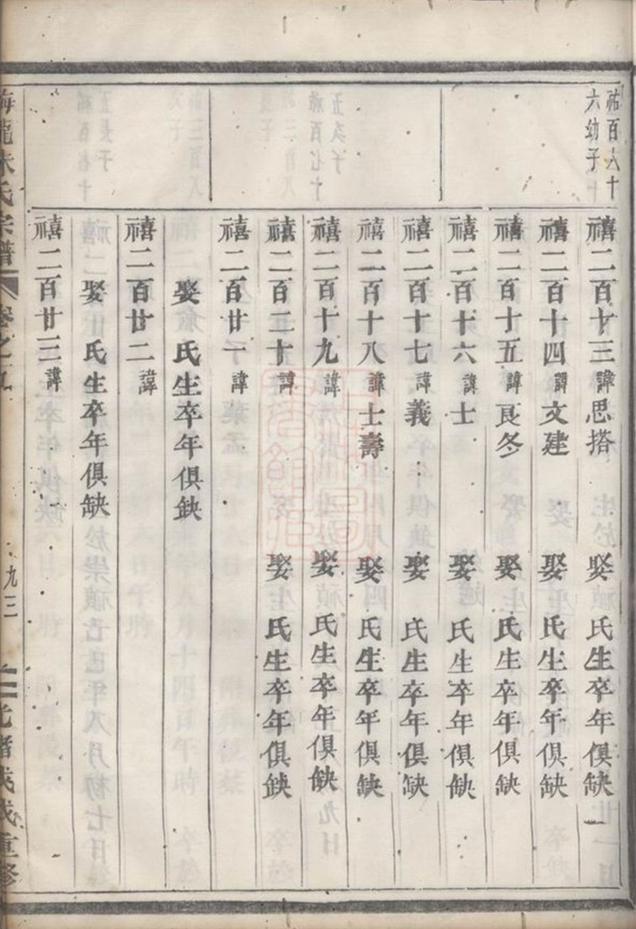 祐百六十
六幼子
禧二百十三諱思搭 娶 氏生卒年俱缺
禧二百十四諱文建 娶 氏生卒年俱缺
禧二百十五諱良冬 娶 氏生卒年俱缺
禧二百十六諱士 娶 氏生卒年俱缺
禧二百十七諱義 娶 氏生卒年俱缺
禧二百十八諱士壽 娶 氏生卒年俱缺
禧二百十九諱 娶 氏生卒年俱缺
禧二百二十諱 娶 氏生卒年俱缺
禧二百廿一諱
娶 氏生卒年俱缺
禧二百廿二諱
娶 氏生卒年俱缺
禧二百廿三諱
龍朱氏宗譜 卷之九 九三 光緒戊戌重修